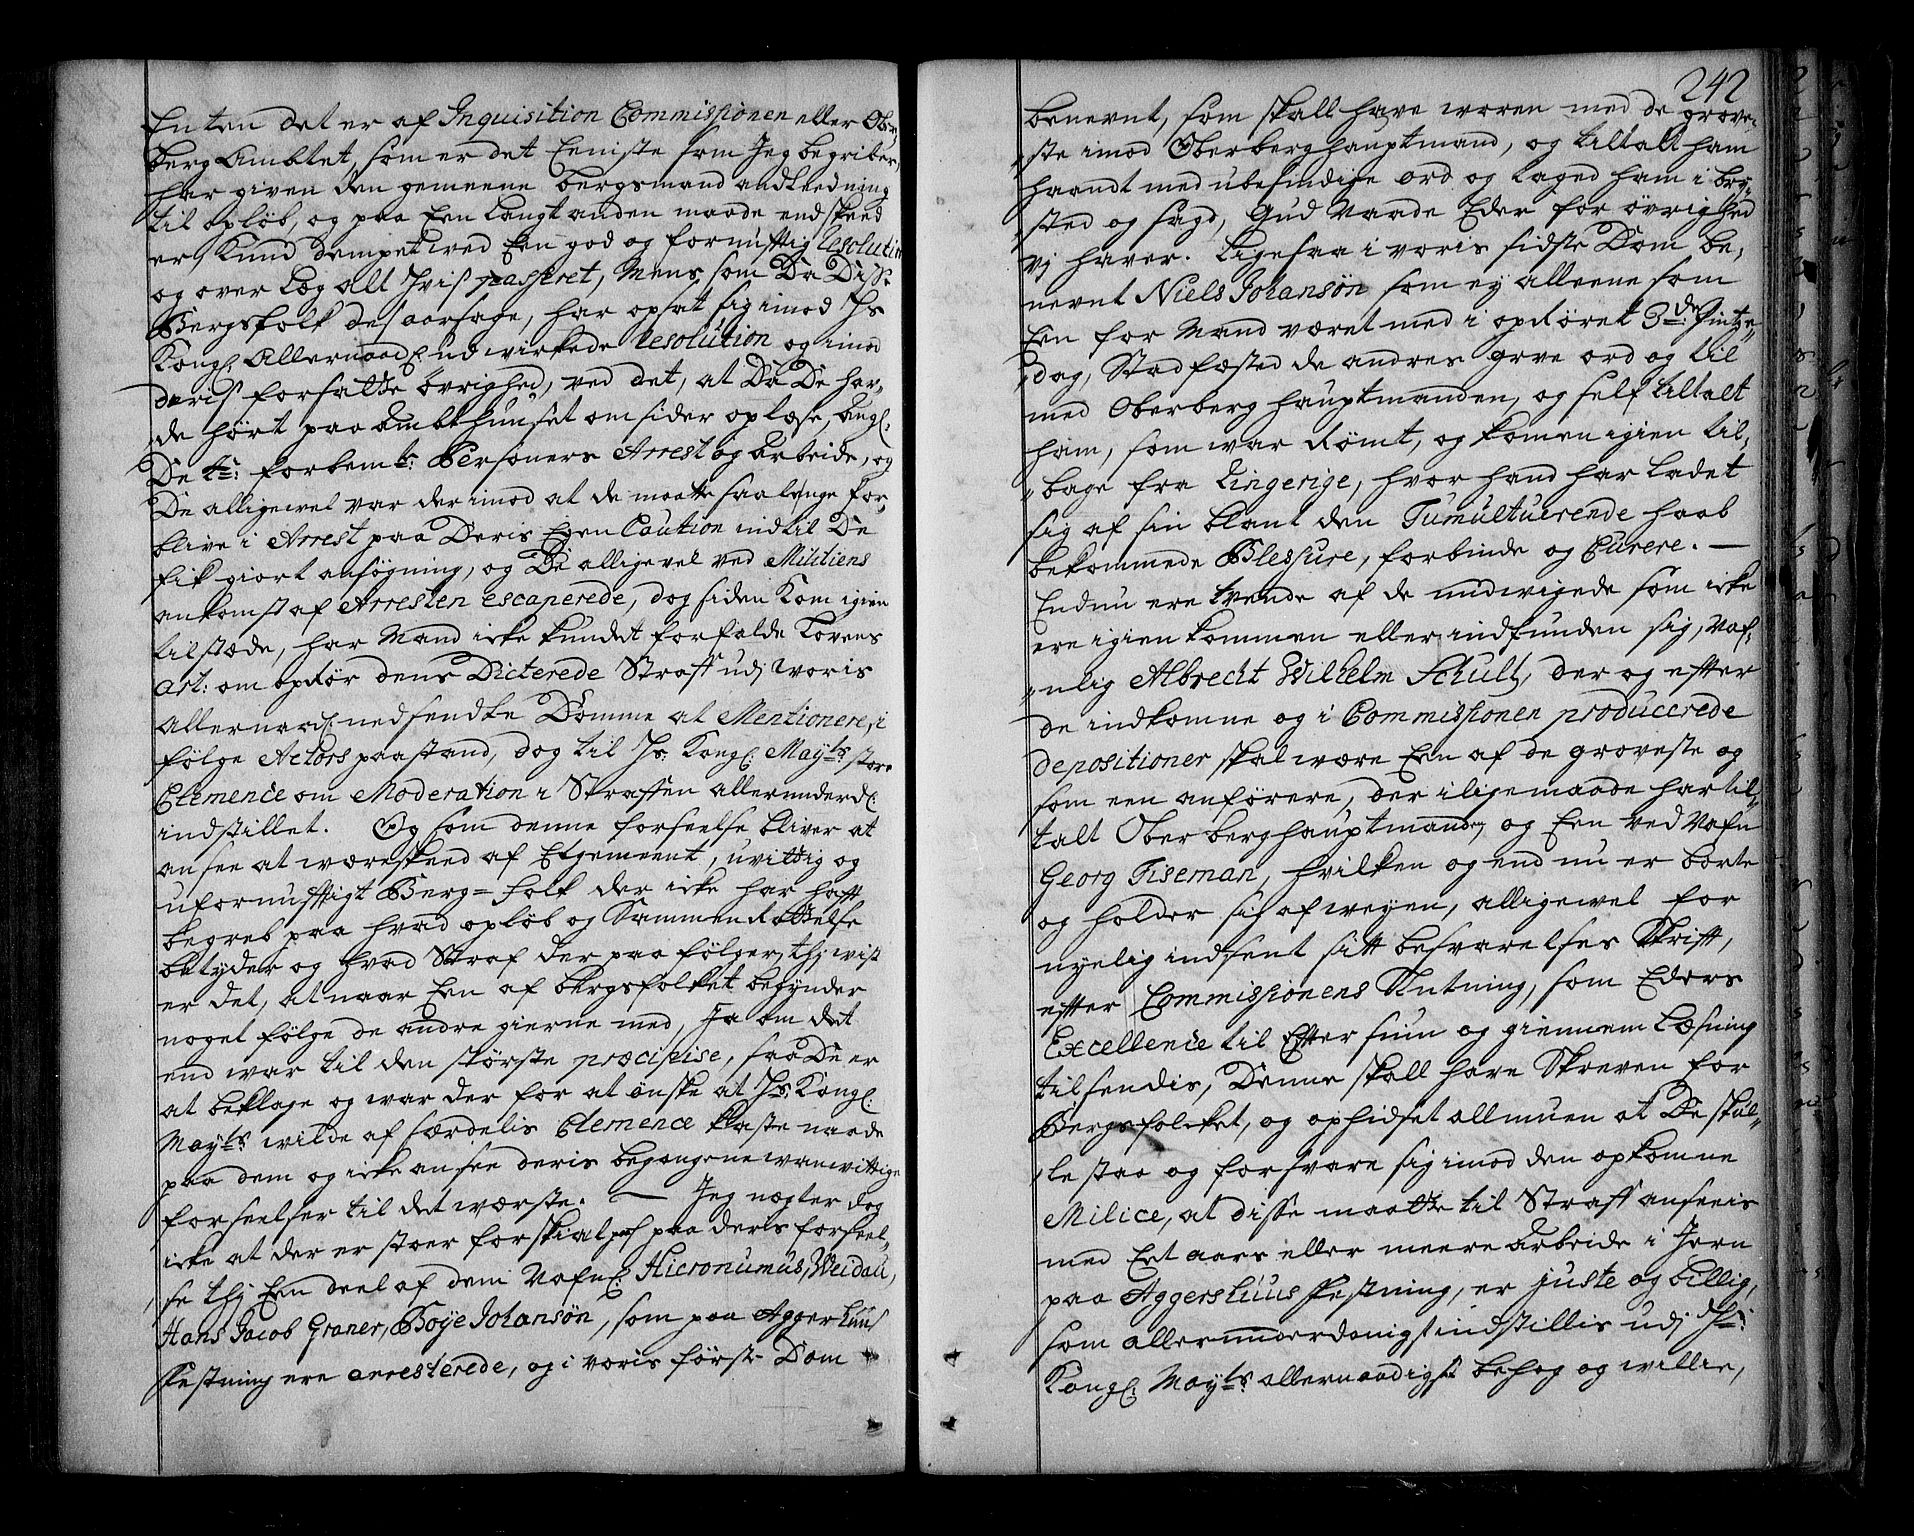 Enten det er af Inquisition Commissionen eller Ober
berg Ambtet, som er det Eeniste som Jeg begriber,
har given den gemeene bergsmand andleedning
til opløb, og paa Een langt anden maade end skeed
er, kund dempet wed Een god og fornufftig Resolution
og over læg alt hvis passeret, Mens som Da Diss:
Bergsfolk des aarsage, har opsat sig imod Hs
Kongl: Allernaadl: udwirkede Resolution og imod
deris forsatte øvrighed, ved det, at Da De haf,,
de hørt paa Ambthuuset omsider oplæse, angl:
De te: forbemte: Persohners Arrest og Arbeide, og
De alligewel var der imod at de maatte saa lenge for,,
blive i Arrest paa Deris Egen Caution indtil De
fik giort ansøgning, og De alligevel ved Militiens
ankomst af Arresten escaperede, dog siden Kom igien
tilstæde, har Mand icke kundet forfalde Lovens
Art: om opRør dens Dicterede Straff udj Woris
allernaadl: nedsendte Domme at Mentionere, i
følge Actors paastand, dog til Hs: Kongl: Mayts: store
Clemence om Moderation i Straffen allerunderdl:
indstillet. Og som denne forseelse bliver at
ansee at wære skeed af Et gemeent, uvittig og
ufornufftigt Berg-folk der icke har hafft
begreb paa hvad opløb og SammenRottelse
betyder og hvad Straf der paa følger, thj wist
er det, at naar Een af bergsfolket begynder
noget følge de andre gierne med, Ja om det
end war til den største præcipise, saa De er
at beklage og war der for at ønske at Hs: Kongl:
Mayts: wilde af særdelis Clemence kaste naade
paa dem og icke ansee deris begangne wanwittige
forseelser til det wærste. — Jeg negter dog
icke at der er stoer forskial paa deris forseel,,
se thj Een deel af dem Nafnl: Hieronumus Weidau,
Hans Jacob Graner, Boÿe Johansøn, som paa Aggerhuus
Festning ere arresterede, og i voris første Dom
242
benevnt, som skall have woren med de grove,,
ste imod Oberberghauptmand, og tiltalt ham
haandt med ubesindige ord og taged ham i bry,,
sted og sagd, Gud Naade Eder for øvrighed
vj haver. Ligesaa i voris sidste Dom be,,
nevnt Niels Johansøn som ey alleene som
Een for Mand været med i opRøret 3de: Pintze,,
dag, Stadfæsted de andres grve ord og til
med Oberberg hauptmanden, og self tiltalt
ham, som war Rømt, og komen igien til,,
bage fra Ringerige, hvor hand har ladet
sig af sin blant den Tumultuerende hob
bekommede Blessure, forbinde og Curere. —
Endnu ere tvende af de undwigede som icke
ere igien kommen eller indfunden sig, Naf,,
nlig Albrecht Wilhelm Schult, der og effter
de indkomne og i Commissionen producerede
depositioner skal wære Een af de groveste og
som een anførere, der iligemaade har til,,
talt Oberberghauptmanden, og Een ved Nafn
Georg Tiseman, hvilken og end nu er borte
og holder sig af weyen, alligewel for
nyelig indsent sitt besvarelses Skrifft,
effter Commissionens Slutning, som Eders
Excellence til Efter siun og giennem læsning
tilsendis, Denne skall have Skreven for
Bergsfolcket, og ophidset allmuen at De skul,,
le staa og forsvare sig imod den opkomne
Milice, at disse maatte til Straff anseeis
med Eet aars eller meere Arbeide i Jern
paa Aggershuus Festning, er juste og billig,
som allerunderdanigst indstillis udj Hs:
Kongl: Mayts: allernaadigste behag og willie,